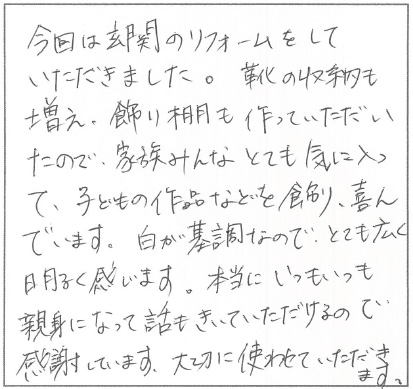 今回は玄関のリフォームをして
いただきました。靴の収納も
増え、飾り棚も作っていただい
たので、家族みんなとても気に入っ
て、子どもの作品などを飾り、喜ん
でいます。白が基調なので、とても広く
明るく感います。本当にいつもいつも
親身になって話もきいていただけるので
感謝しています、大切に使わせていただき
ます。